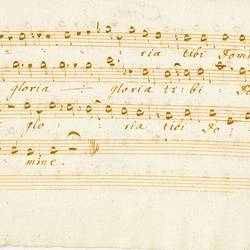 ria tibi Domi
gloria gloria ti bi Do
glo ria tibi Do
mine.